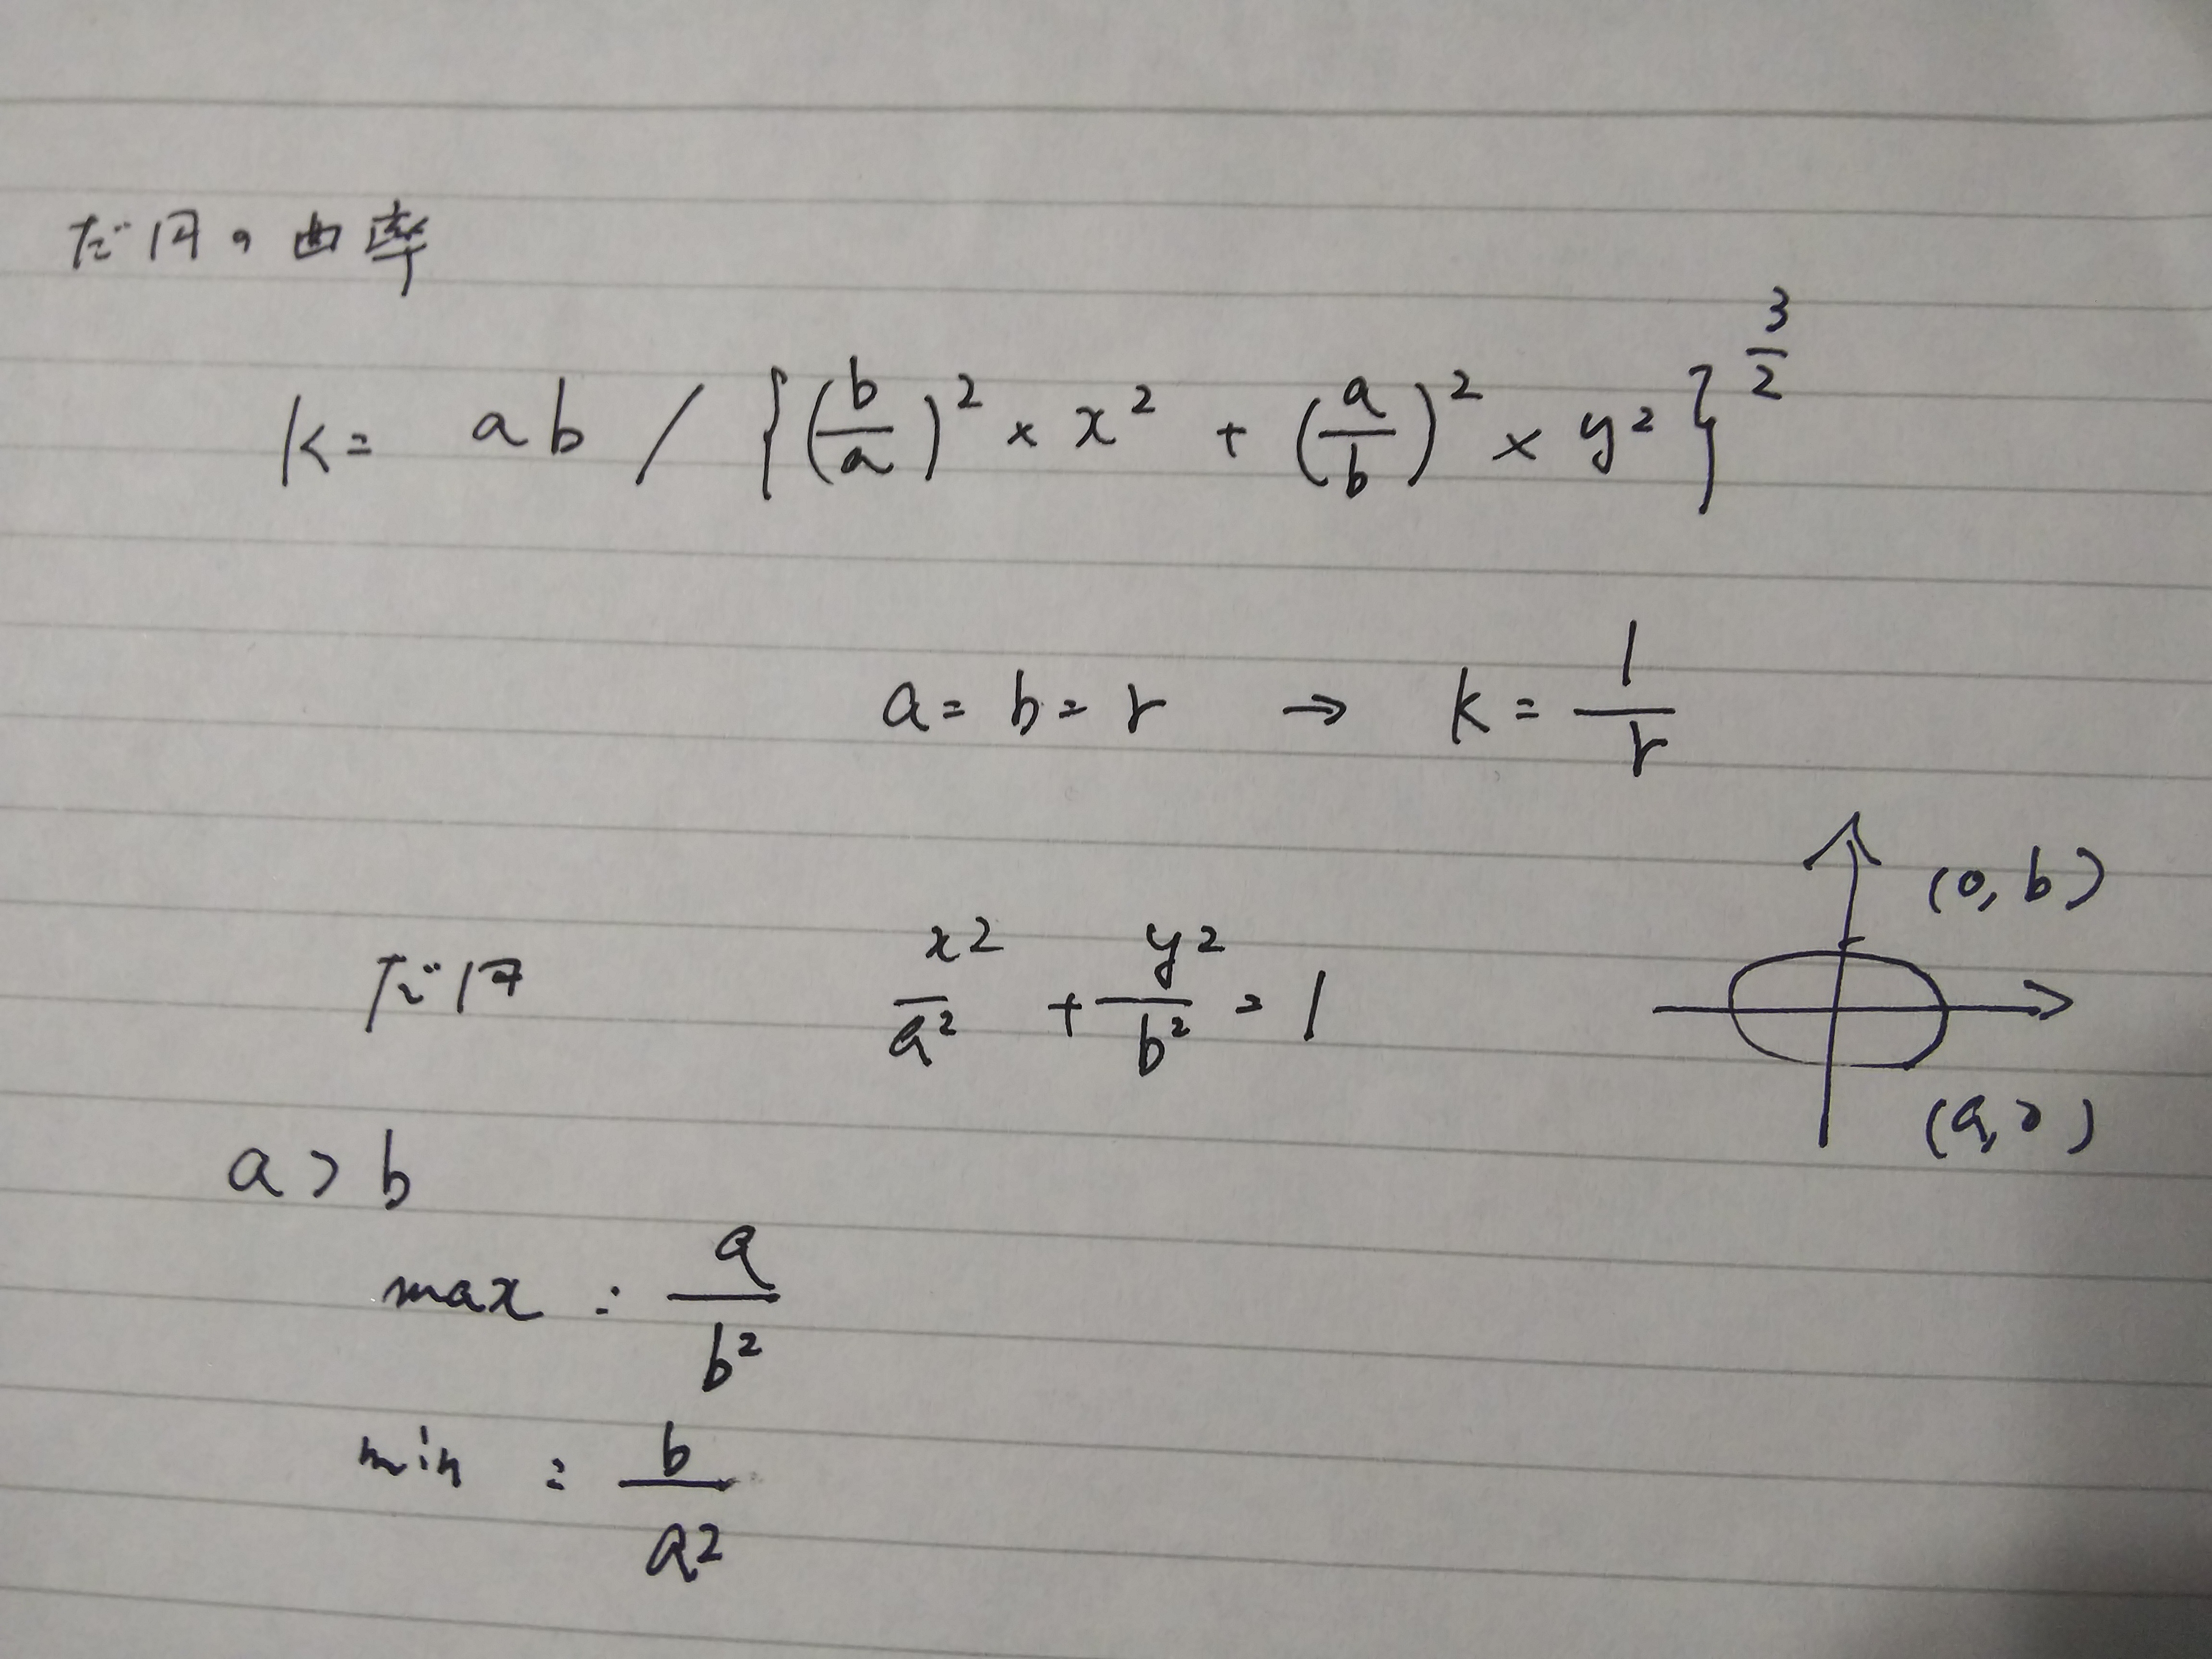 だ円の曲率
k = ab / {(b/a)^2 × x^2 + (a/b)^2 × y^2}^(3/2)
a = b = r → k = 1/r
(0, b)
だ円 x^2/a^2 + y^2/b^2 = 1
(a, 0)
a > b
max : a/b^2
min : b/a^2